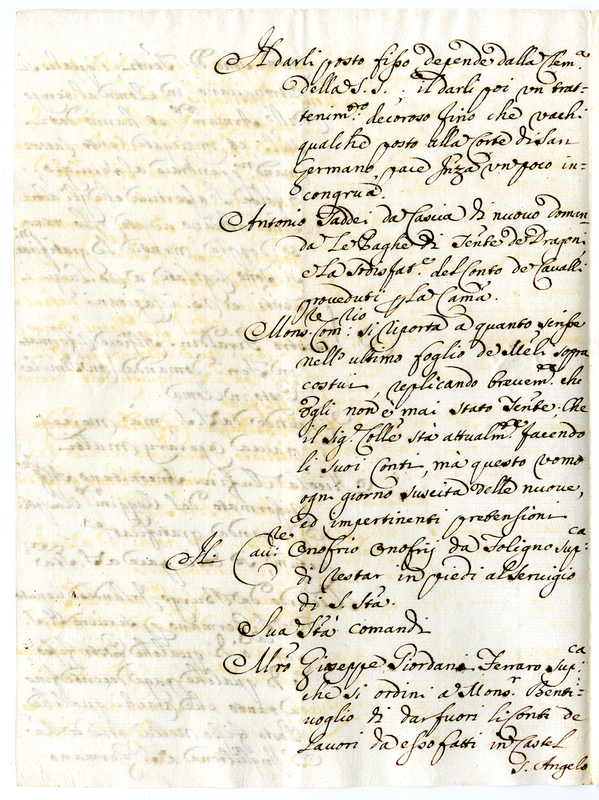 Il darli posto fisso depende dalla Clem.ª
della S. S. il darli poi un trat-
tenim.to decoroso fino che vachi
qualche posto alla Corte di San
Germano, pare senza un poco in-
congruà
Antonio Taddei da Cascia di nuovo doman
da le Paghe di Tente de Dragoni
e la sodisfat.e del Conto de Cavalli
proveduti p la Cam.a
Mons.re Com.rio si riporta à quanto scrisse
nell' ultimo foglio de Meli sopra
costui replicando brevem.te che
egli non è mai stato Tente. Che
il Sig.r Colle stà attualm.te facendo
li suoi Conti, mà questo vomo
ogni giorno suscita delle nuove,
ed impertinenti pretensioni
Il Cau.re Onofrio Onofrij da Foligno sup.ca
di restar in piedi al servigio
di S. Stà.
Sua Stà comandi
Mrò Giuseppe Giordani Ferraro sup.ca
che si ordini à Mons.r Benti-
voglio di dar fuori li Conti de
Lavori da esso fatti in Castel
S. Angelo